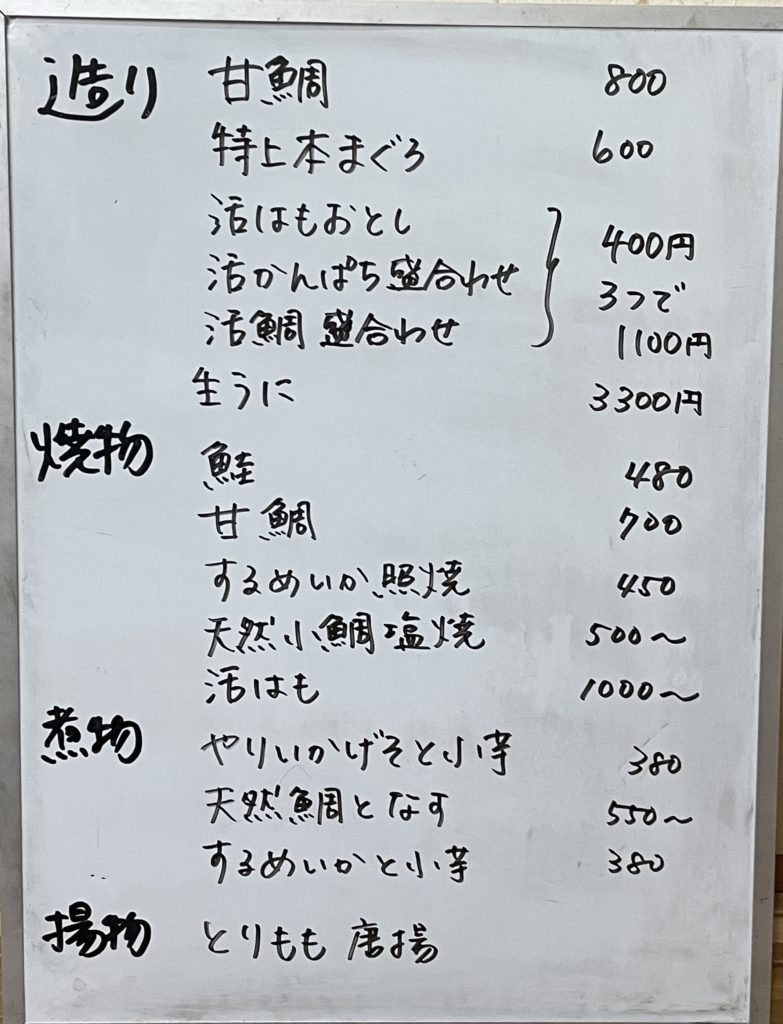 造り 甘鯛 800
特上本まぐろ 600
活はもおとし
400円
活かんぱち盛合わせ
3つで
活鯛盛合わせ
1100円
生うに 3300円
焼物
鮭 480
甘鯛 700
するめいか照焼 450
天然小鯛塩焼 500〜
活はも 1000〜
煮物
やりいかげそと小芋 380
天然鯛となす 550〜
するめいかと小芋 380
揚物 とりもも唐揚